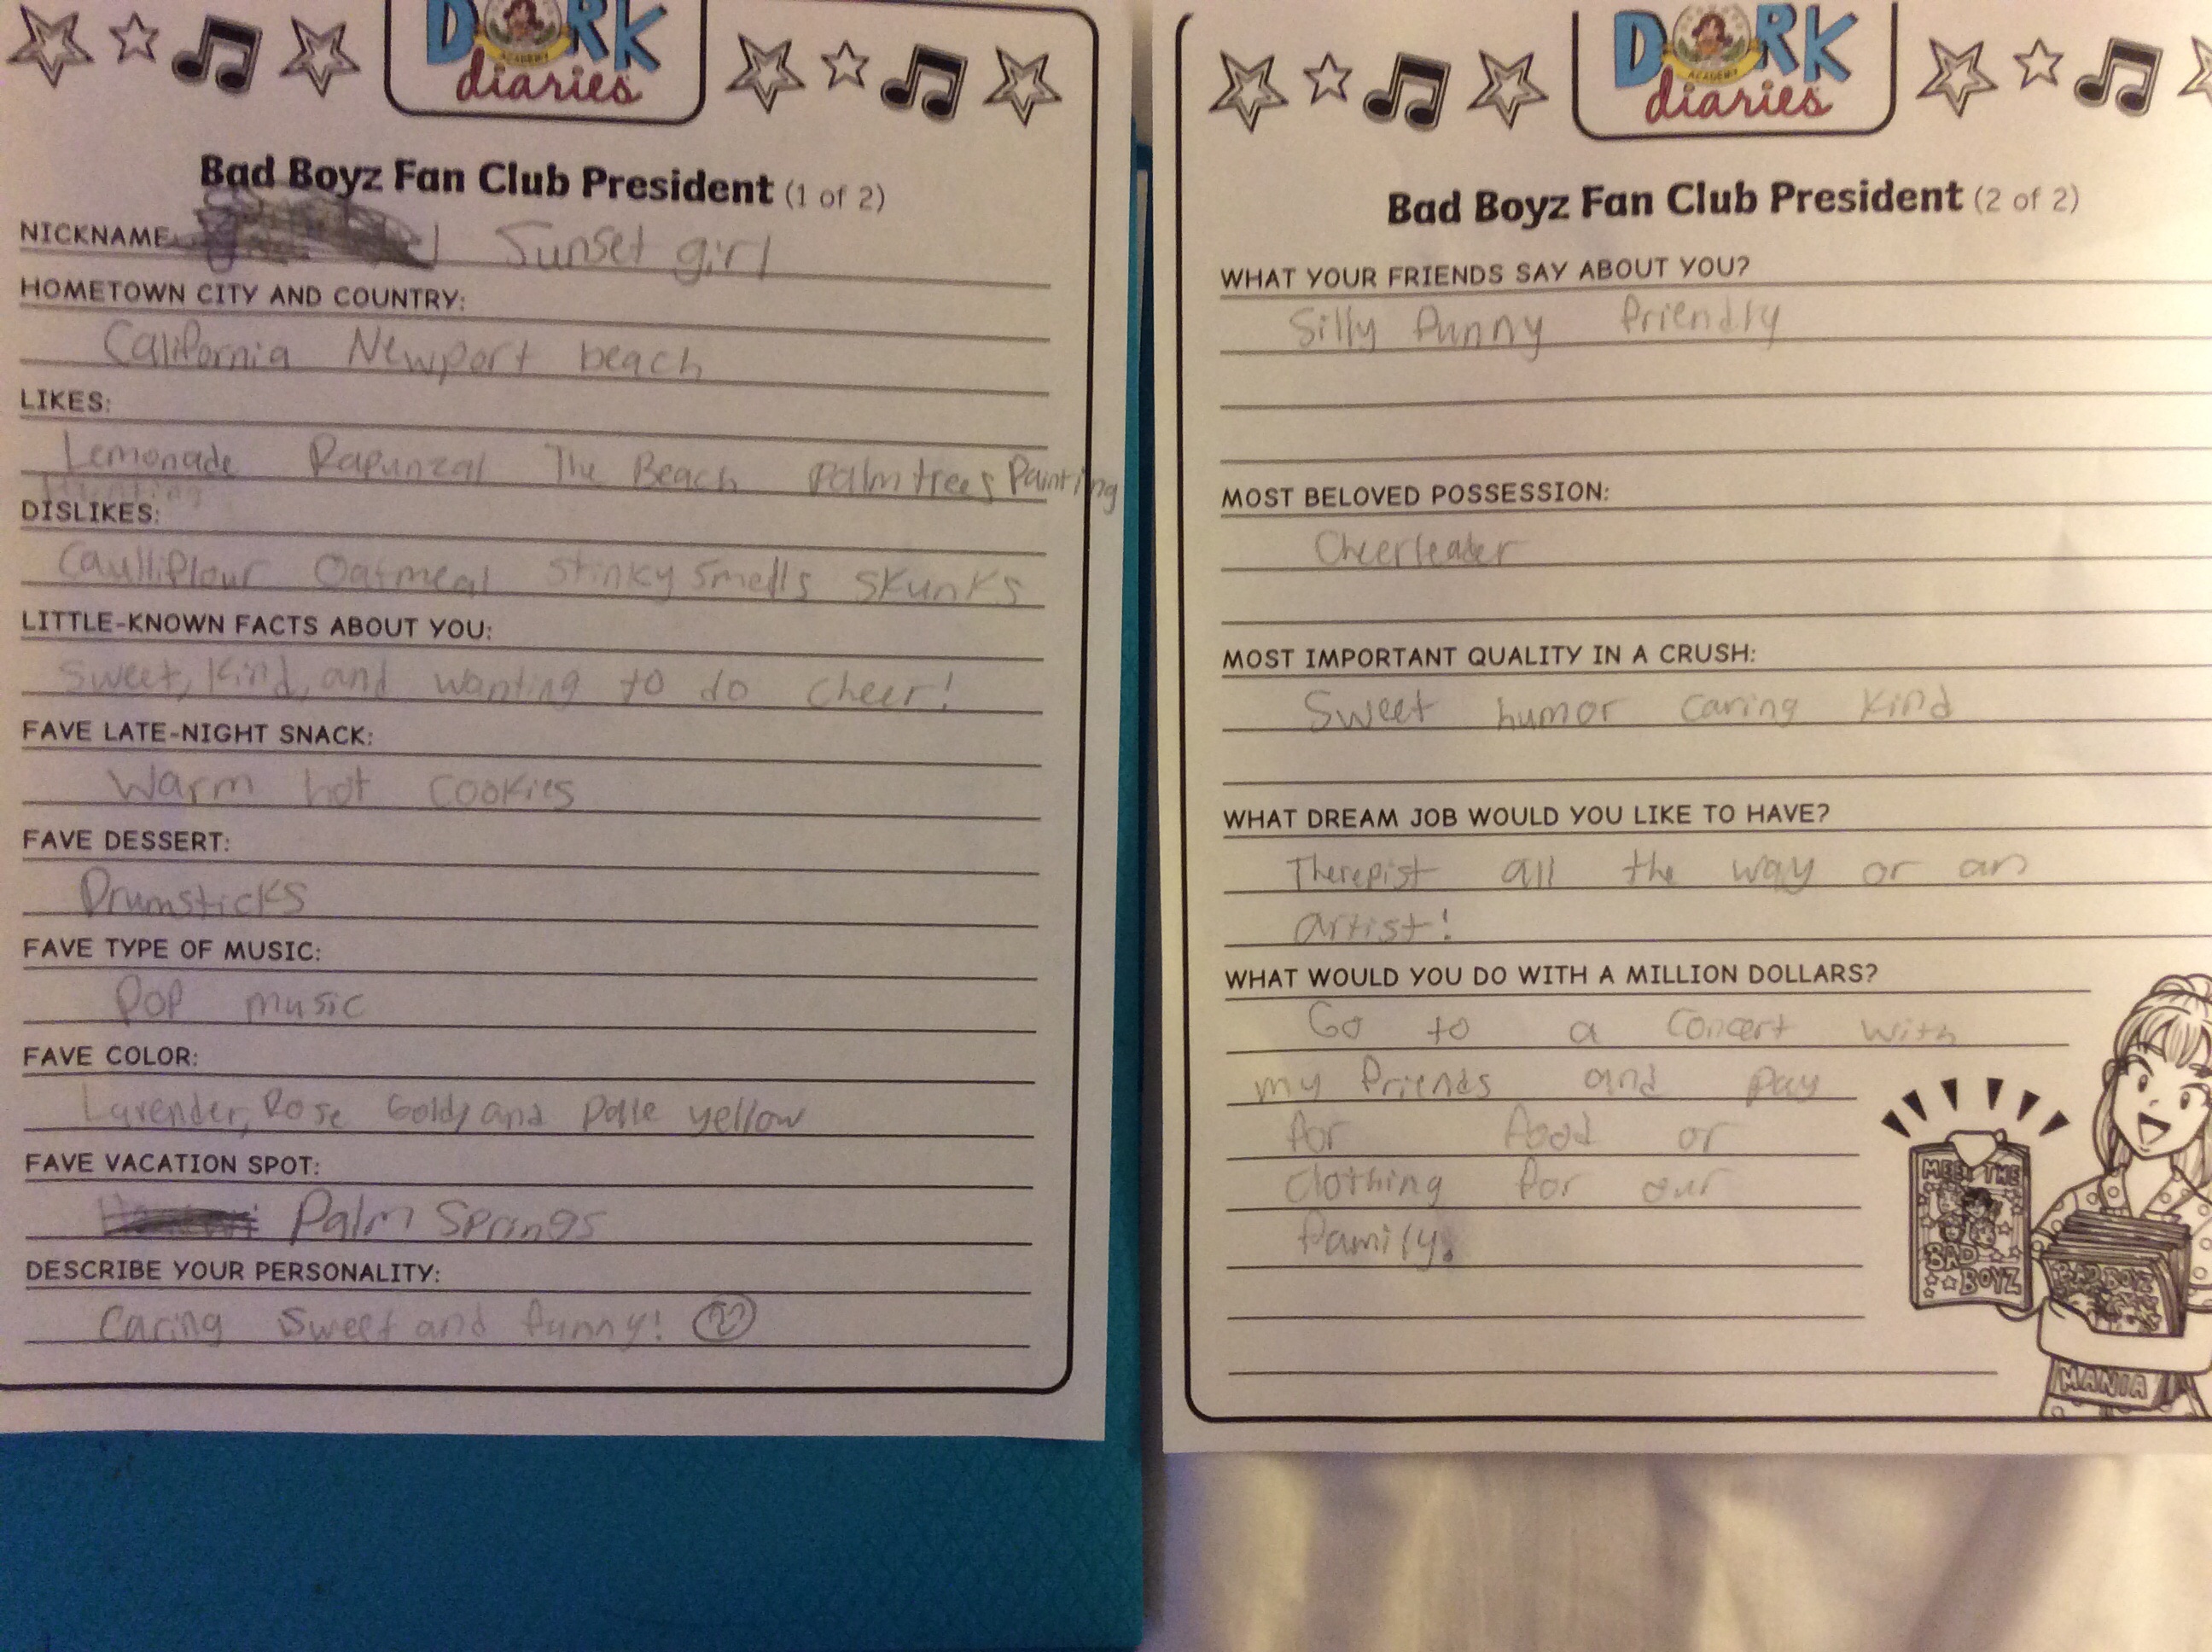 DORK
diaries
Bad Boyz Fan Club President (1 of 2)
NICKNAME: Sunset girl
HOMETOWN CITY AND COUNTRY:
California Newport beach
LIKES:
Lemonade Rapunzal The Beach palm trees Painting
DISLIKES:
Caulliflour Oatmeal stinky smells skunks
LITTLE-KNOWN FACTS ABOUT YOU:
Sweet, kind, and wanting to do cheer!
FAVE LATE-NIGHT SNACK:
Warm hot cookies
FAVE DESSERT:
Drumsticks
FAVE TYPE OF MUSIC:
Pop music
FAVE COLOR:
Lavender, Rose Gold, and palle yellow
FAVE VACATION SPOT:
Palm Springs
DESCRIBE YOUR PERSONALITY:
Caring Sweet and funny!
DORK
ACADEMY
diaries
Bad Boyz Fan Club President (2 of 2)
WHAT YOUR FRIENDS SAY ABOUT YOU?
Silly funny friendly
MOST BELOVED POSSESSION:
Cheerleader
MOST IMPORTANT QUALITY IN A CRUSH:
Sweet humor caring kind
WHAT DREAM JOB WOULD YOU LIKE TO HAVE?
Therepist all the way or an
artist!
WHAT WOULD YOU DO WITH A MILLION DOLLARS?
Go to a concert with
my friends and pay
for food or
clothing for our
family.
MEET THE
BAD
BOYZ
BAD BOYZ
MANIA